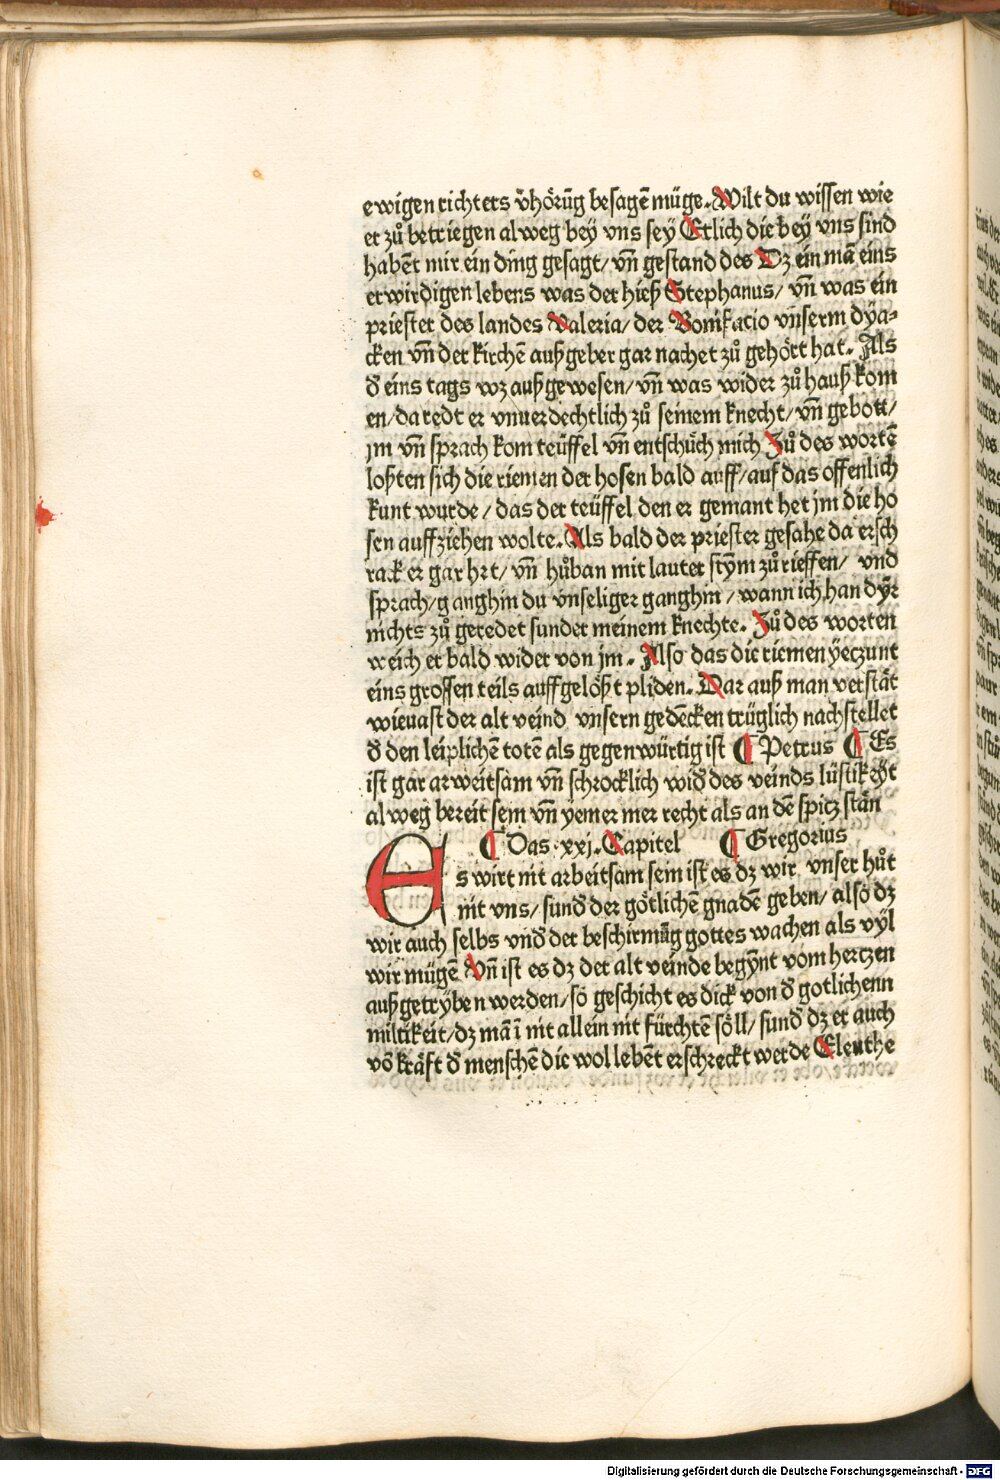 ewigen richters v̄hörūg besagē müge. Wilt du wissen wie
er zů betriegen alweg bey vns sey Etlich die bey vns sind
habēt mir ein ding gesagt/ vn̄ gestand des Dz ein mā eins
erwirdigen lebens was der hieß Stephanus/ vn̄ was ein
priester des landes Valeria/ der Bonifacio vnserm dÿa-
cken vn̄ der kirchē außgeber gar nachet zů gehört hat. Als
d̄ eins tags wz auß gewesen/ vn̄ was wider zů hauß kom
en/ da redt er vnuerdechtlich zů seinem knecht/ vn̄ gebott/
jm vn̄ sprach kom teüffel vn̄ entschůch mich Zů des wortē
loßten sich die riemen der hosen bald auff/ auf das offenlich
kunt wurde/ das der teüffel den er gemant het jm die ho
sen auffziehen wolte. Als bald der priester gesahe da ersch
rack er gar hrt/ vn̄ hůban mit lauter stym̄ zů rieffen/ vnd
sprach/ ganghin du vnseliger ganghin/ wann ich han dÿr
nichts zů geredet sunder meinem knechte. Zů des worten
weich er bald wider von jm. Also das die riemen yeczunt
eins grossen teils auffgelößt pliden. Dar auß man verstāt
wieuast der alt veind vnsern gedēcken trüglich nachstellet
d̄ den leiplichē totē als gegenwürtig ist ¶ Petrus ¶ Es
ist gar arweitsam vn̄ schrocklich wid̄ des veinds lüstikeÿt
alweg bereit sein vn̄ yemer mer recht als an dē spicz stān
¶ Das .xxj. Capitel ¶ Gregorius
Es wirt nit arbeitsam sein ist es dz wir vnser hůt
nit vns/ sund̄ der götlichē gnadē geben/ also dz
wir auch selbs vnd̄ der beschirmūg gottes wachen als vÿl
wir mügē Vn̄ ist es dz der alt veinde begÿnt vom hertzen
außgetrÿben werden/ so geschicht es dick von d̄ gotlichenn
miltikeit/ dz mā ī nit allein nit fürchtē söll/ sund̄ dz er auch
vō kräft d̄ menschē die wol lebēt erschreckt werde Eleuthe
Digitalisierung gefördert durch die Deutsche Forschungsgemeinschaft - DFG